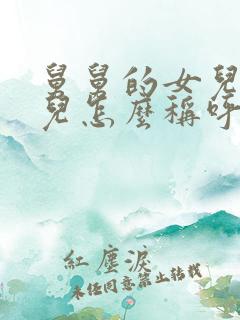 舅舅的女兒
兒怎麼稱呼
紅塵淚
未經同意禁止轉載